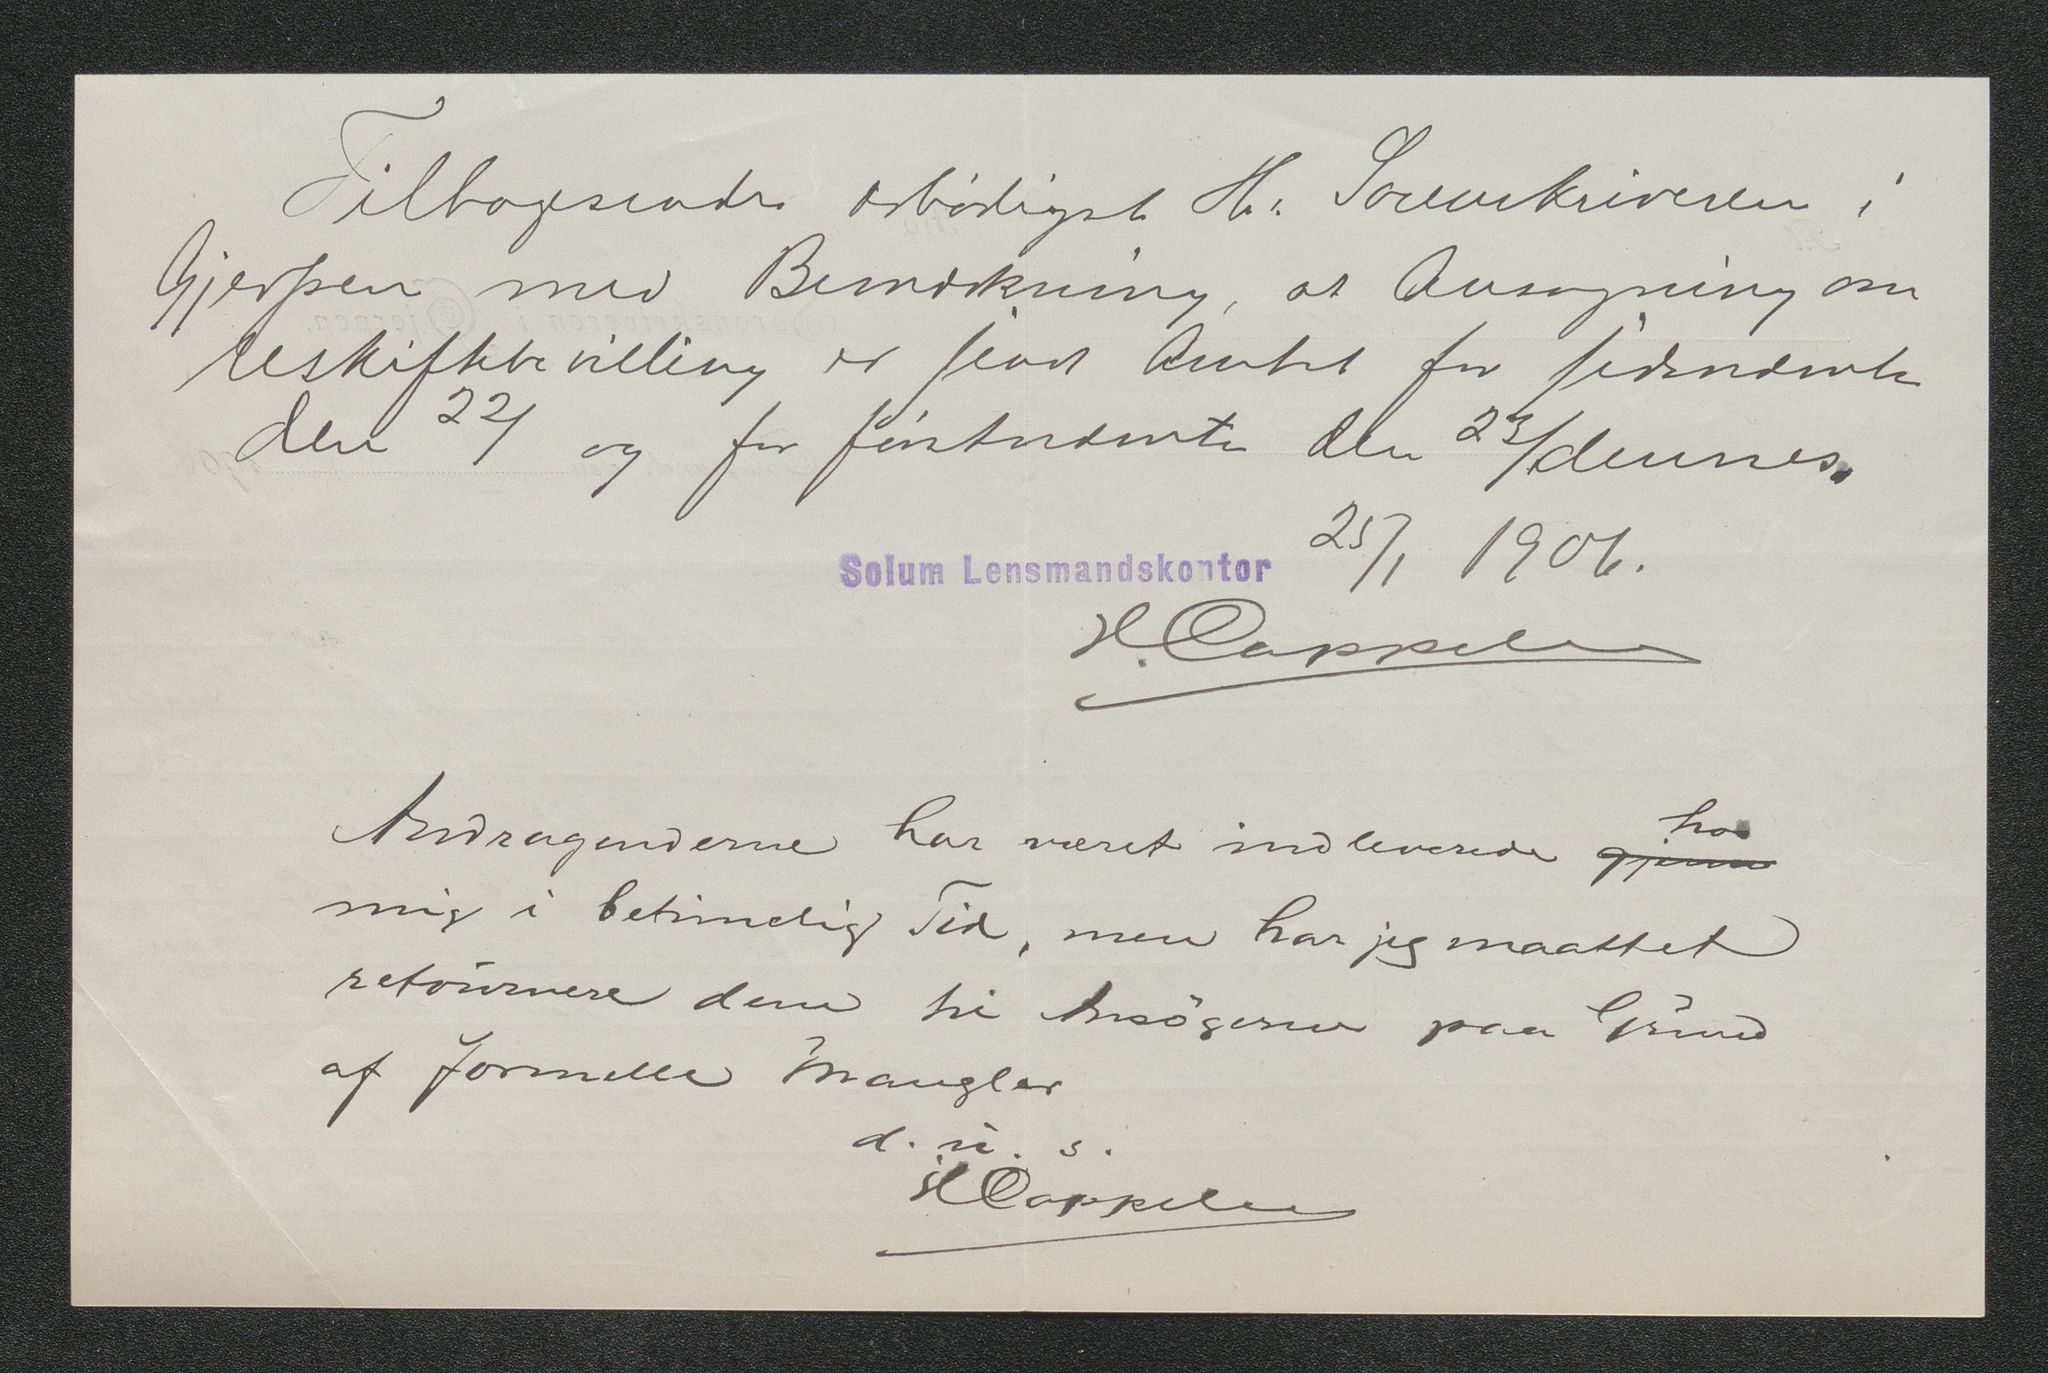 Tilbagesendes ærbødigst Hr. Sorenskriveren i
Gjerpen med Bemærkning, at Ansøgning om
Uskiftebevilling er sendt Amtet for sidstnævnte
den 22/ og for førstnævnte den 23/ dennes.
Solum Lensmandskontor 25/1 1906.
H. Cappelen
Andragenderne har været indleverede hos
mig i betimelig Tid, men har jeg maattet
retournere dem til Ansøgerne paa Grund
af formelle Mangler
d. u. s.
H Cappelen